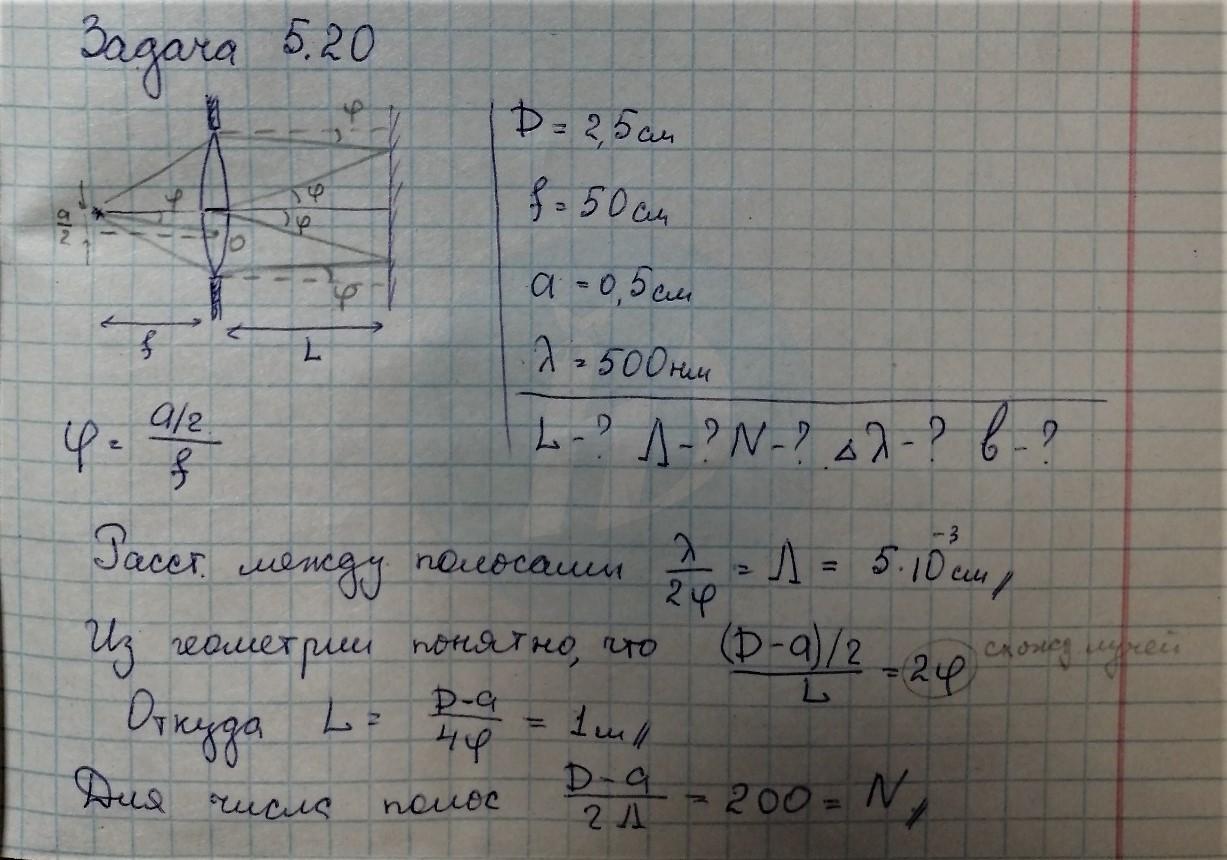 Задача 5.20
φ
φ
φ
φ
φ
a/2
O
f
L
D = 2,5 см
f = 50 см
a = 0,5 см
λ = 500 нм
L - ? Λ - ? N - ? Δλ - ? b - ?
φ = (a/2)/f
Расст. между полосами λ/2φ = Λ = 5·10⁻³ см //
Из геометрии понятно, что ((D-a)/2)/L = 2φ схожд лучей
Откуда L = (D-a)/4φ = 1 м //
Для числа полос (D-a)/2Λ = 200 = N //